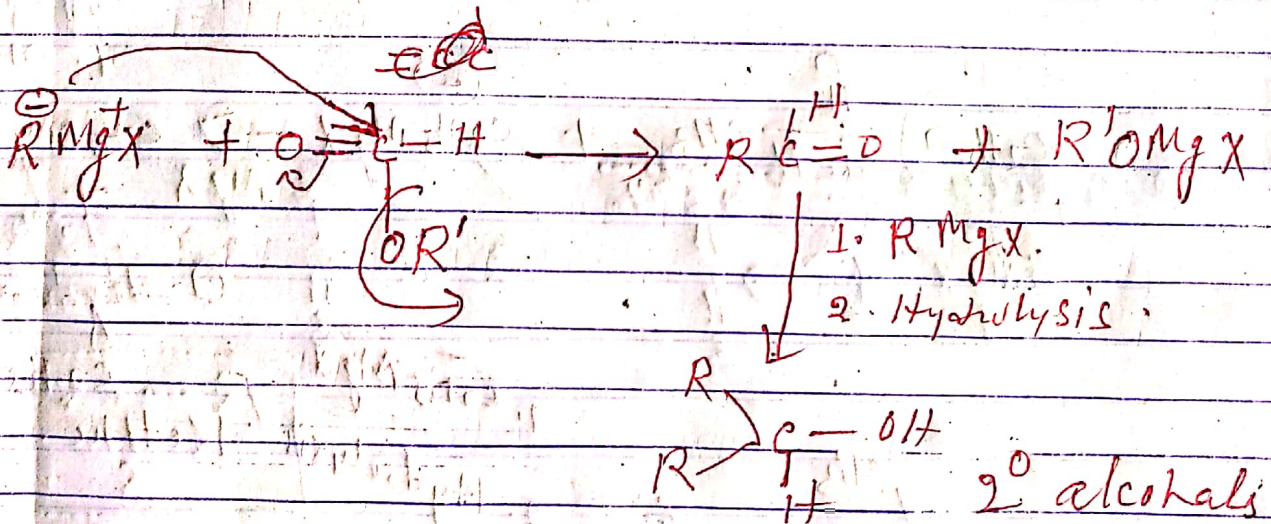 R⊖Mg⁺X + O=C–H → R C=O + R'OMgX
H
OR'
1. R Mg X.
2. Hydrolysis.
R
C — OH
R
H
2⁰ alcohals